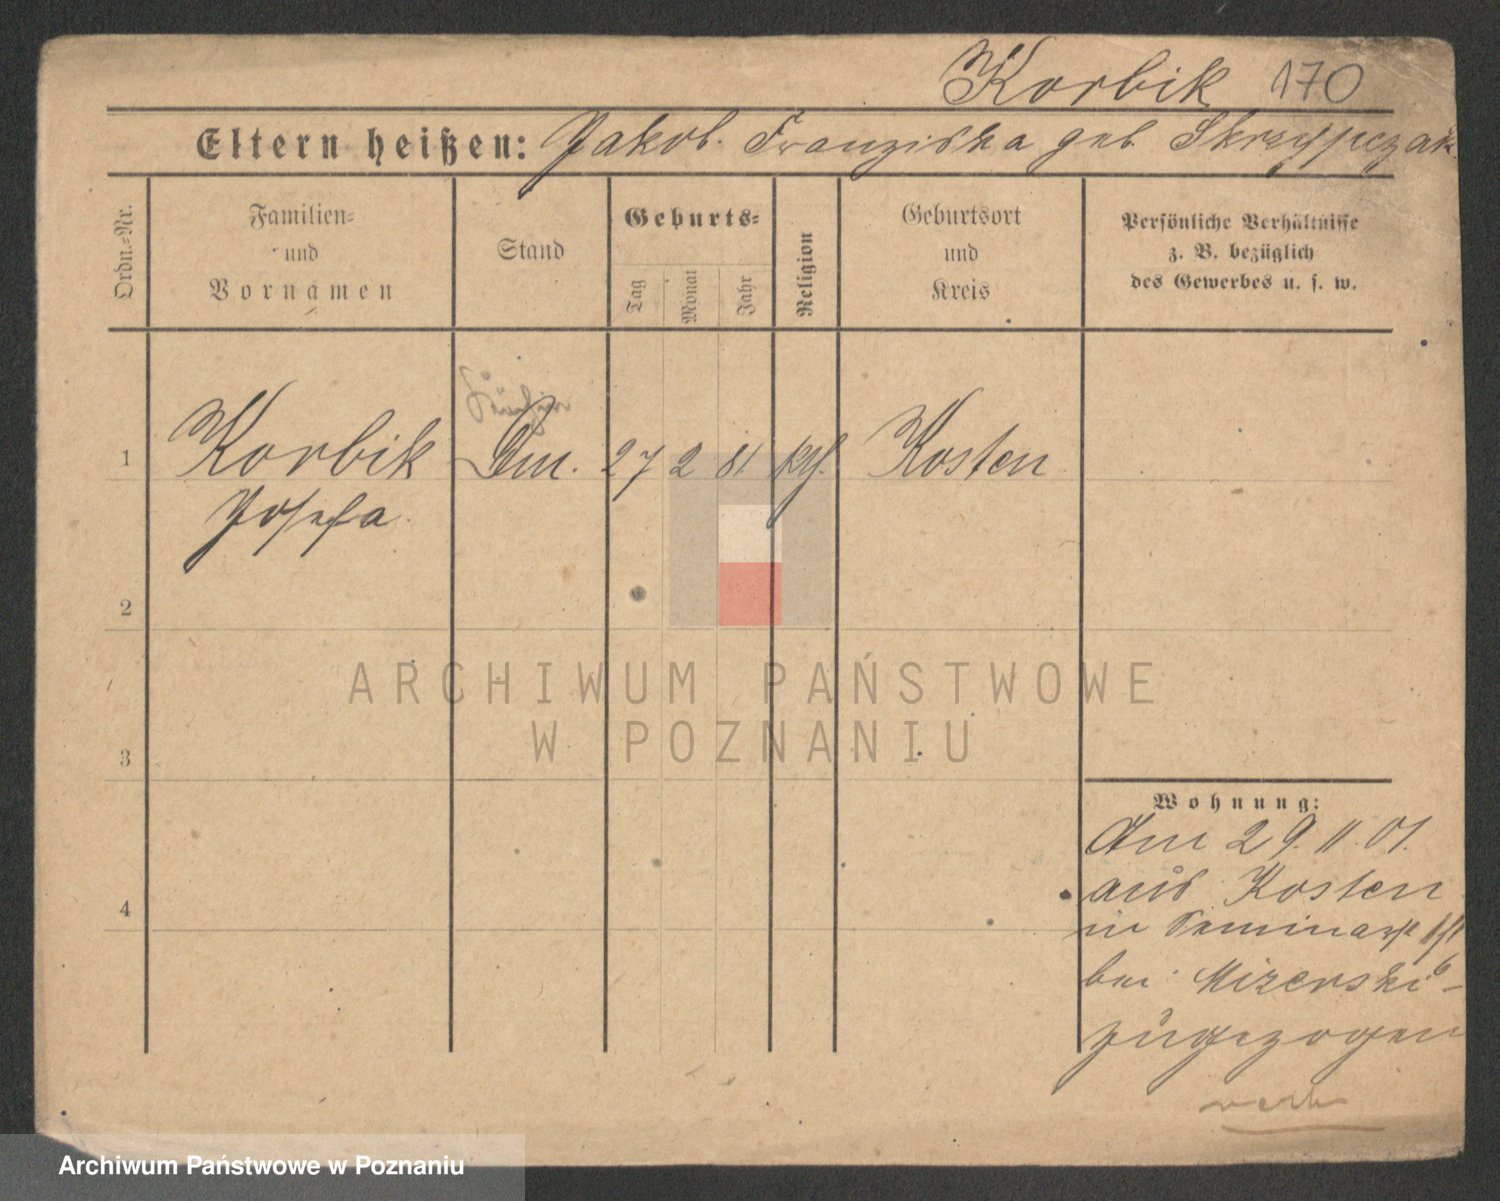 Korbik 170
Eltern heißen: Jakob. Franziska geb. Skrzypczak
Ordn.=Nr.
Familien=
und
Vornamen
Stand
Geburts=
Tag
Monat
Jahr
Religion
Geburtsort
und
Kreis
Persönliche Verhältnisse
z. B. bezüglich
des Gewerbes u. s. w.
1 Korbik 27 2 81 kth. Kosten
Josefa
2
3
4
ARCHIWUM PAŃSTWOWE
W POZNANIU
Wohnung:
Am 29. 11. 01.
aus Kosten
in Seminarst
bei Mizerski
zugezogen
Archiwum Państwowe w Poznaniu